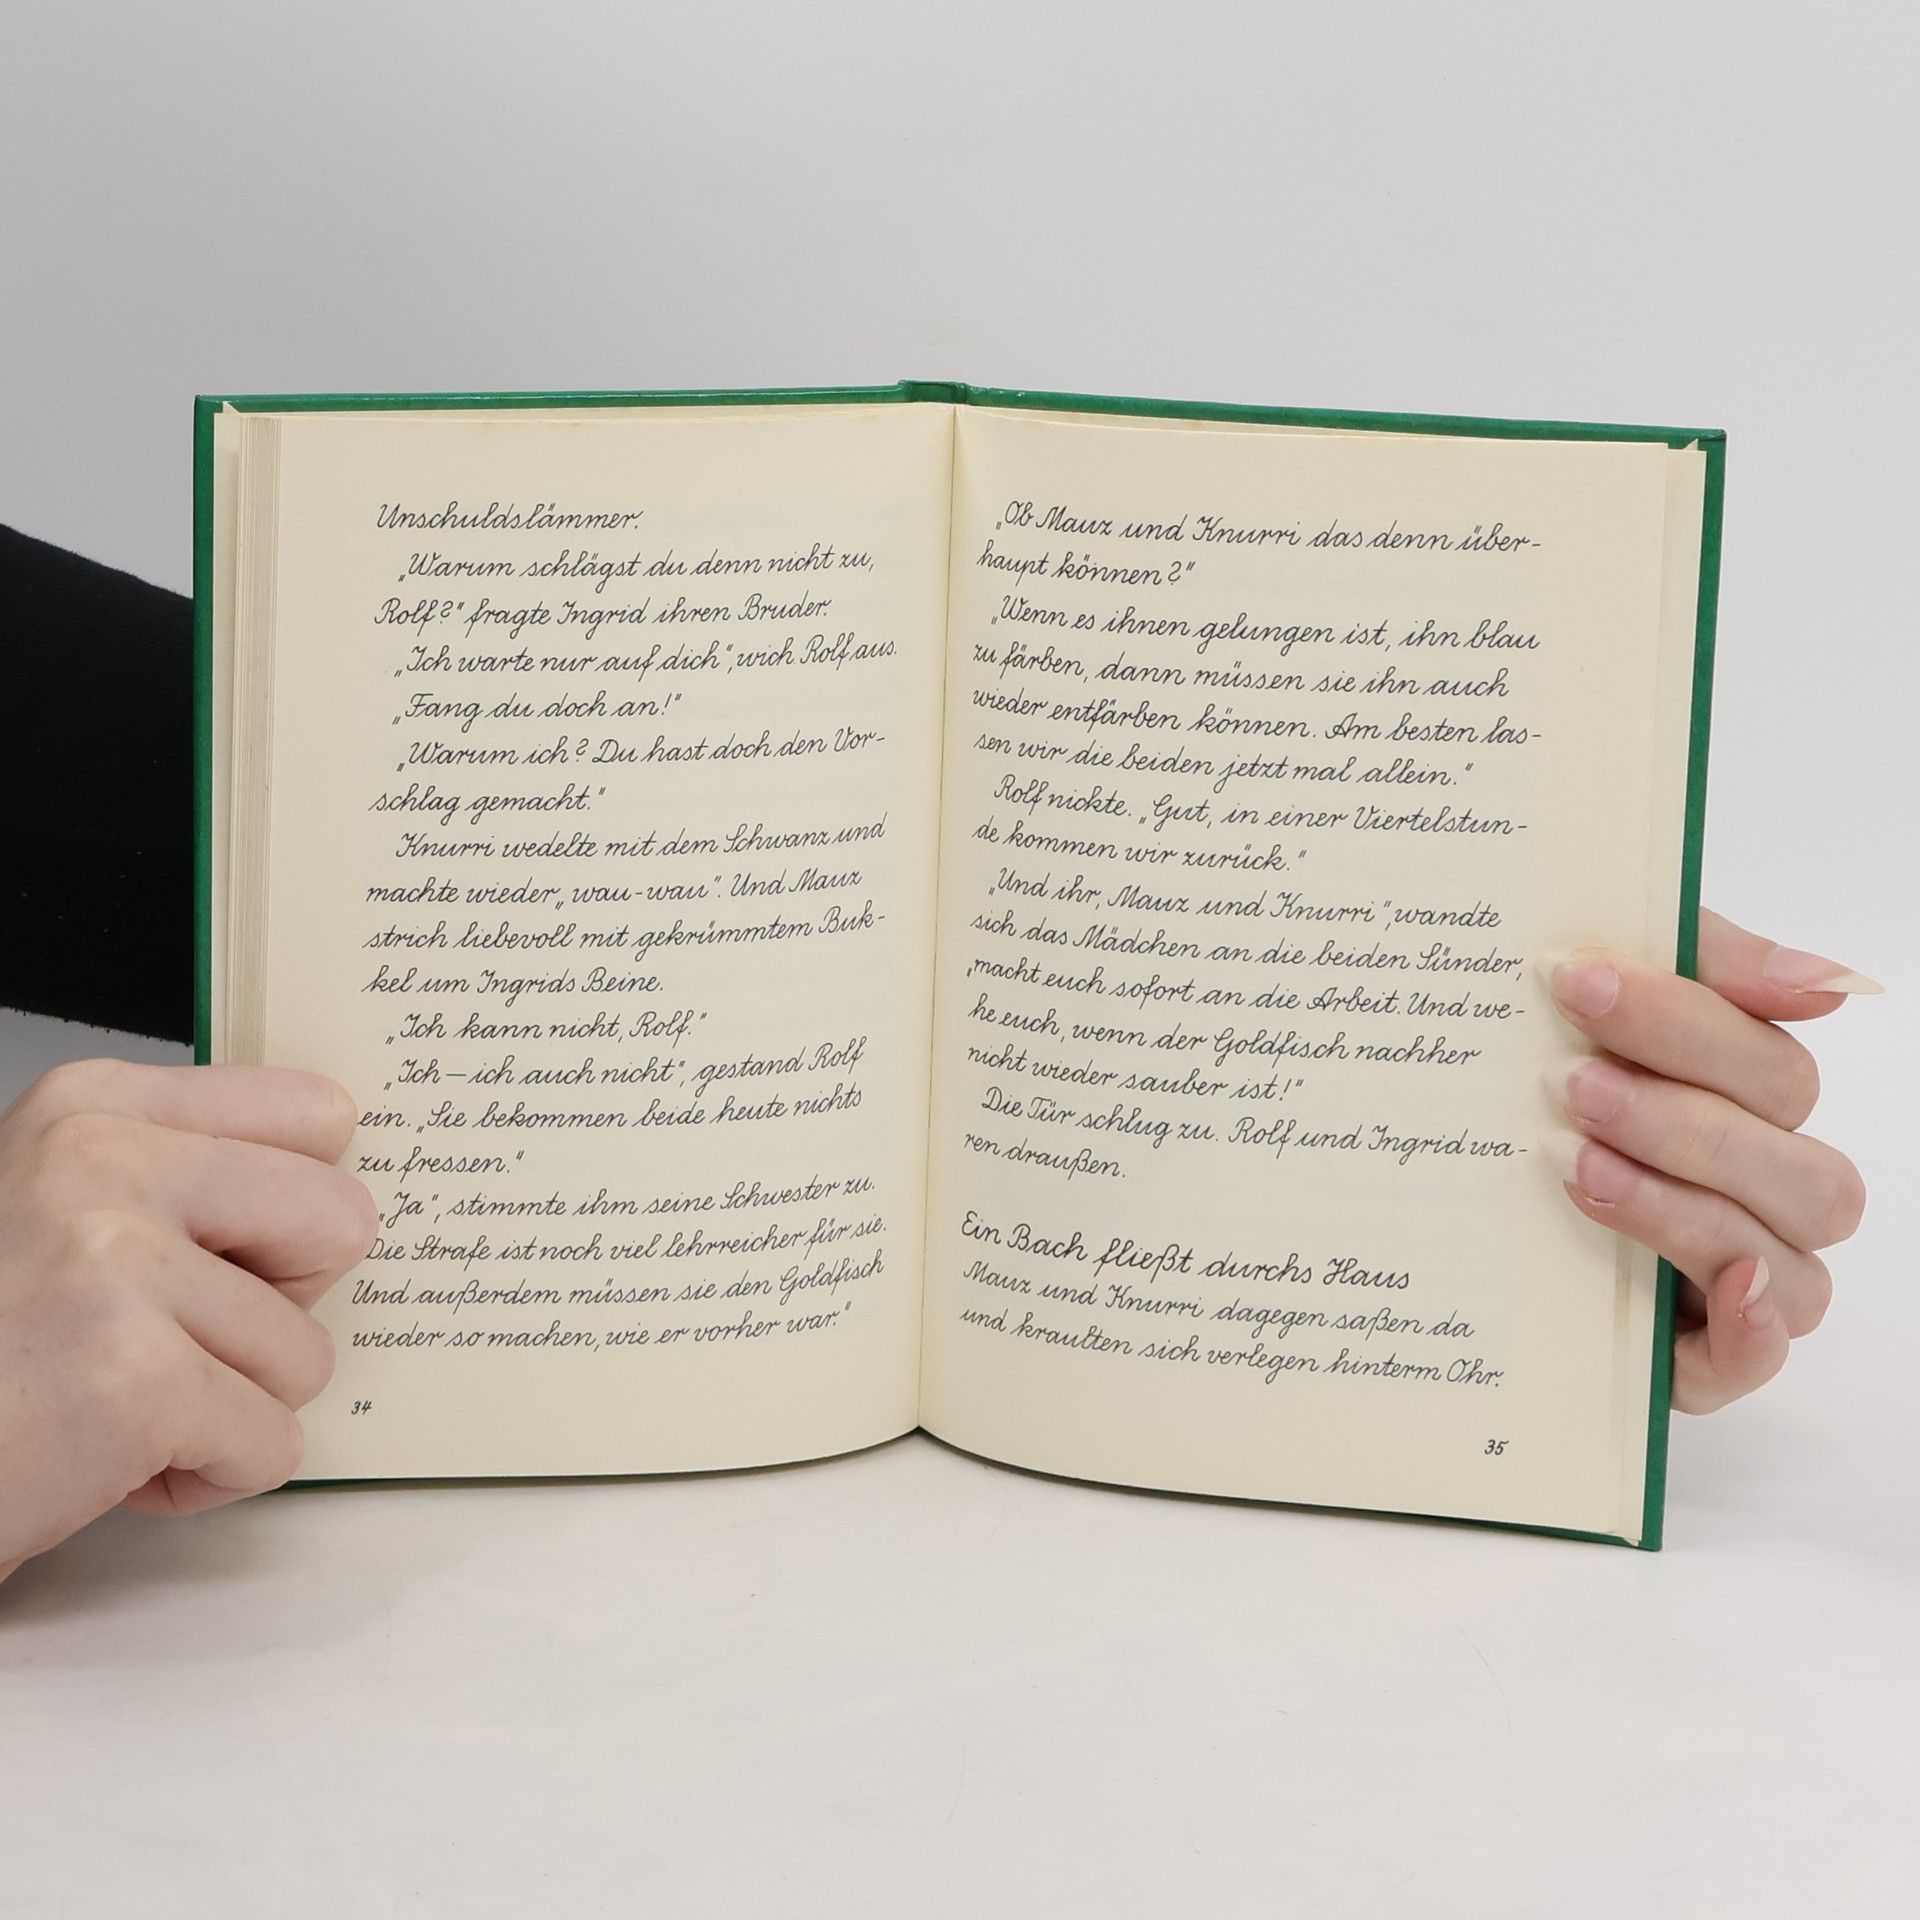 Unschuldslämmer.
„Warum schlägst du denn nicht zu,
Rolf?“ fragte Ingrid ihren Bruder.
„Ich warte nur auf dich“, wich Rolf aus.
„Fang du doch an!“
„Warum ich? Du hast doch den Vor-
schlag gemacht.“
Knurri wedelte mit dem Schwanz und
machte wieder „wau-wau“. Und Mauz
strich liebevoll mit gekrümmtem Buk-
kel um Ingrids Beine.
„Ich kann nicht, Rolf.“
„Ich – ich auch nicht“, gestand Rolf
ein. „Sie bekommen beide heute nichts
zu fressen.“
„Ja“, stimmte ihm seine Schwester zu.
Die Strafe ist noch viel lehrreicher für sie.
Und außerdem müssen sie den Goldfisch
wieder so machen, wie er vorher war.“
34
„Ob Mauz und Knurri das denn über-
haupt können?“
„Wenn es ihnen gelungen ist, ihn blau
zu färben, dann müssen sie ihn auch
wieder entfärben können. Am besten las-
sen wir die beiden jetzt mal allein.“
Rolf nickte. „Gut, in einer Viertelstun-
de kommen wir zurück.“
„Und ihr, Mauz und Knurri“, wandte
sich das Mädchen an die beiden Sünder,
„macht euch sofort an die Arbeit. Und we-
he euch, wenn der Goldfisch nachher
nicht wieder sauber ist!“
Die Tür schlug zu. Rolf und Ingrid wa-
ren draußen.
Ein Bach fließt durchs Haus
Mauz und Knurri dagegen saßen da
und kraulten sich verlegen hinterm Ohr.
35